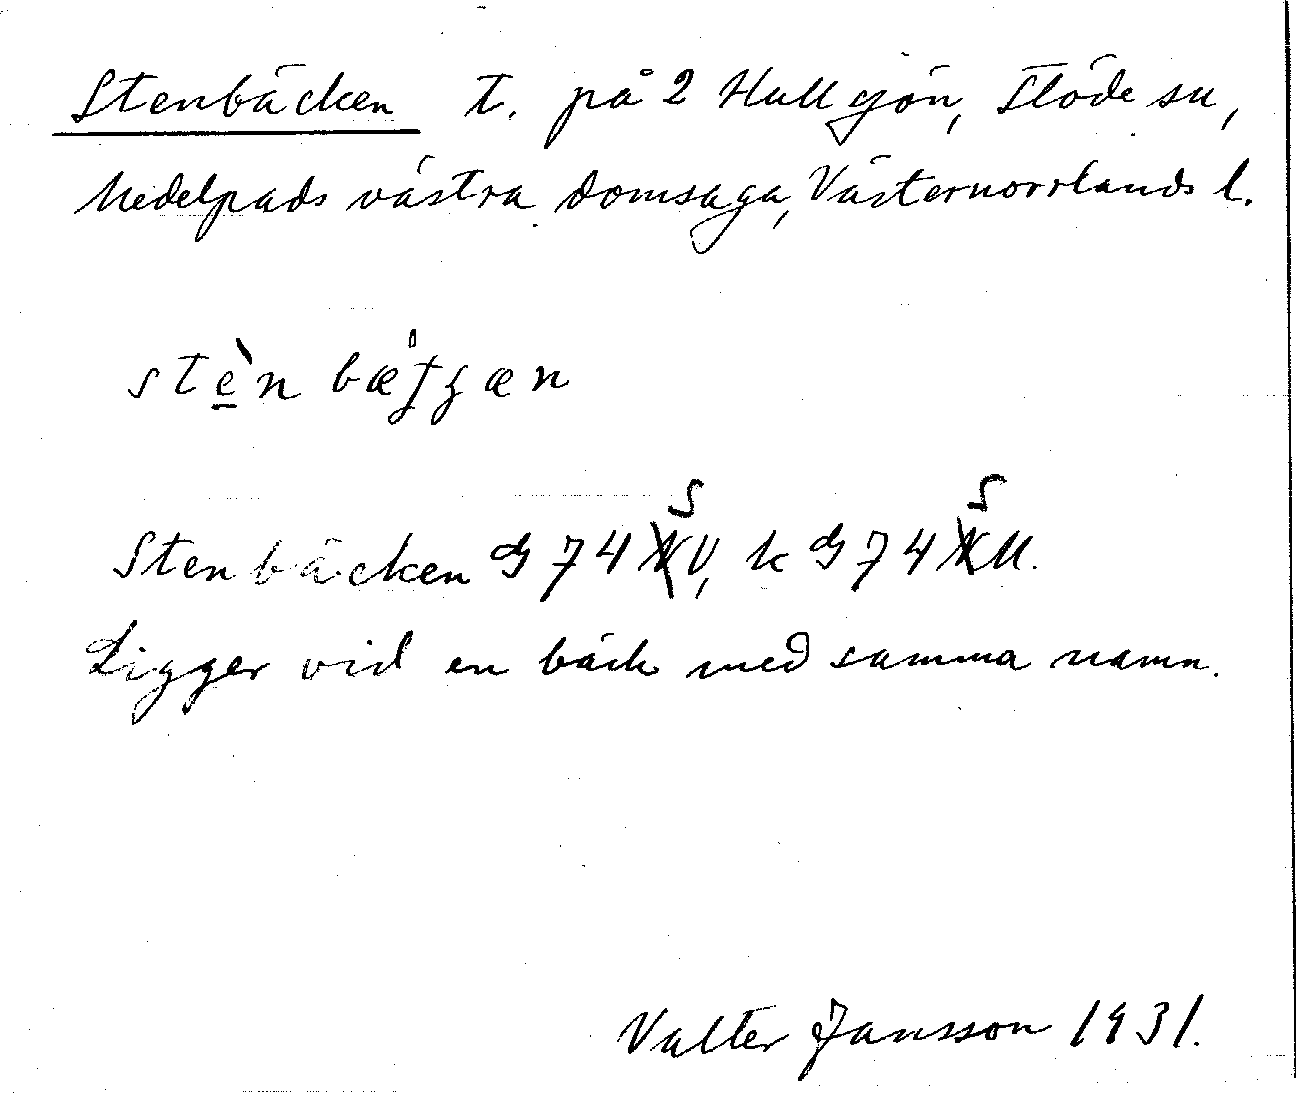 Stenbäcken t. på 2 Hullsjön, Stöde sn,
Medelpads västra domsaga, Västernorrlands l.
stèn
S S
Stenbäcken G 74 V, k G 74 U.
Ligger vid en bäck med samma namn.
Valter Jansson 1931.